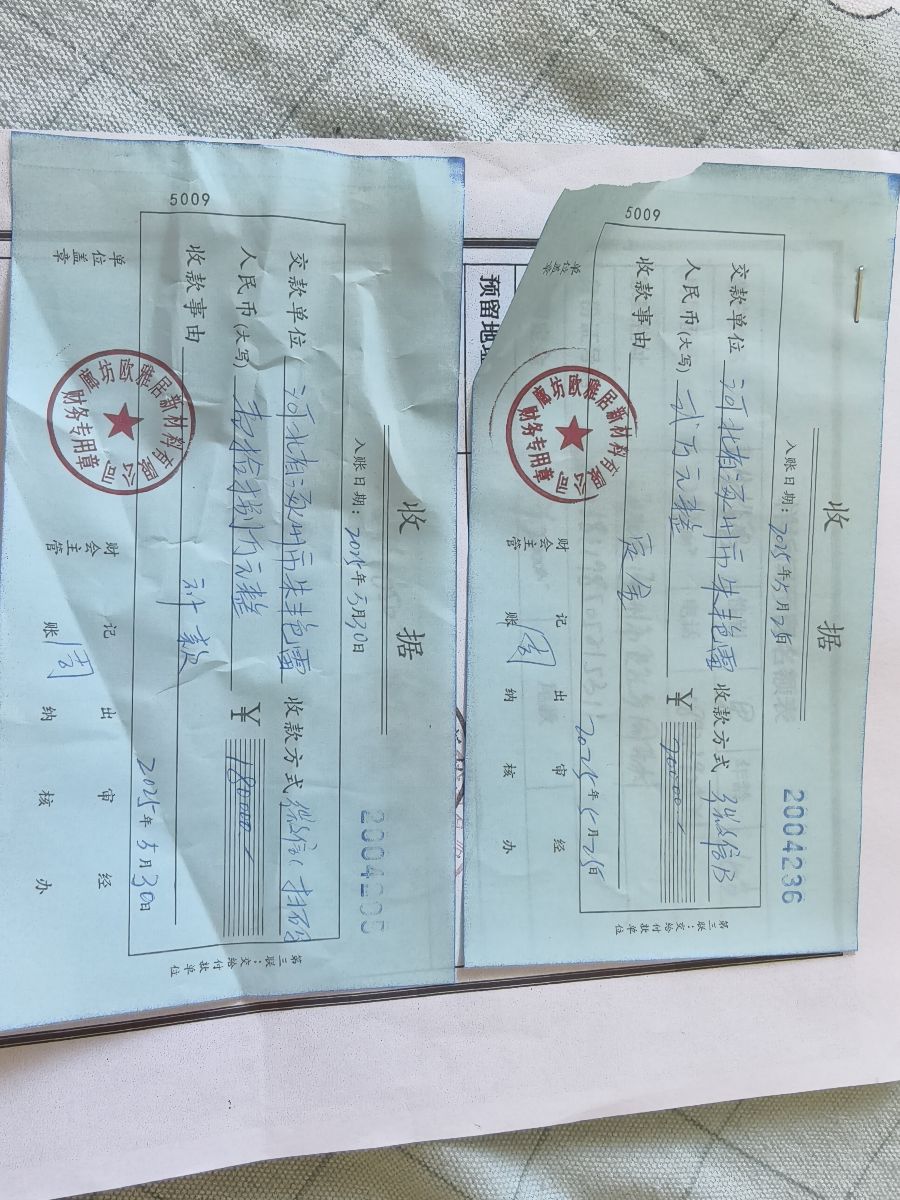 收 据
2004236
入账日期：2025年5月25日
交款单位 河北省涿州市朱艳雷 收款方式 微信
人民币(大写) 贰万元整 ￥ 20000
收款事由 定金
2025年5月25日
单位盖章 财会主管 记账 周 出纳 审核 经办
第三联：交给付款单位
5009
廊坊欧雅居新材料 公司
财务专用章
预留地址
收 据
入账日期：2025年5月30日
交款单位 河北省涿州市朱艳雷 收款方式 微信(扫码
人民币(大写) 拾捌万元整 ￥ 180000
收款事由 补款
2025年5月30日
单位盖章 财会主管 记账 周 出纳 审核 经办
第三联：交给付款单位
5009
廊坊欧雅居新材料 公司
财务专用章